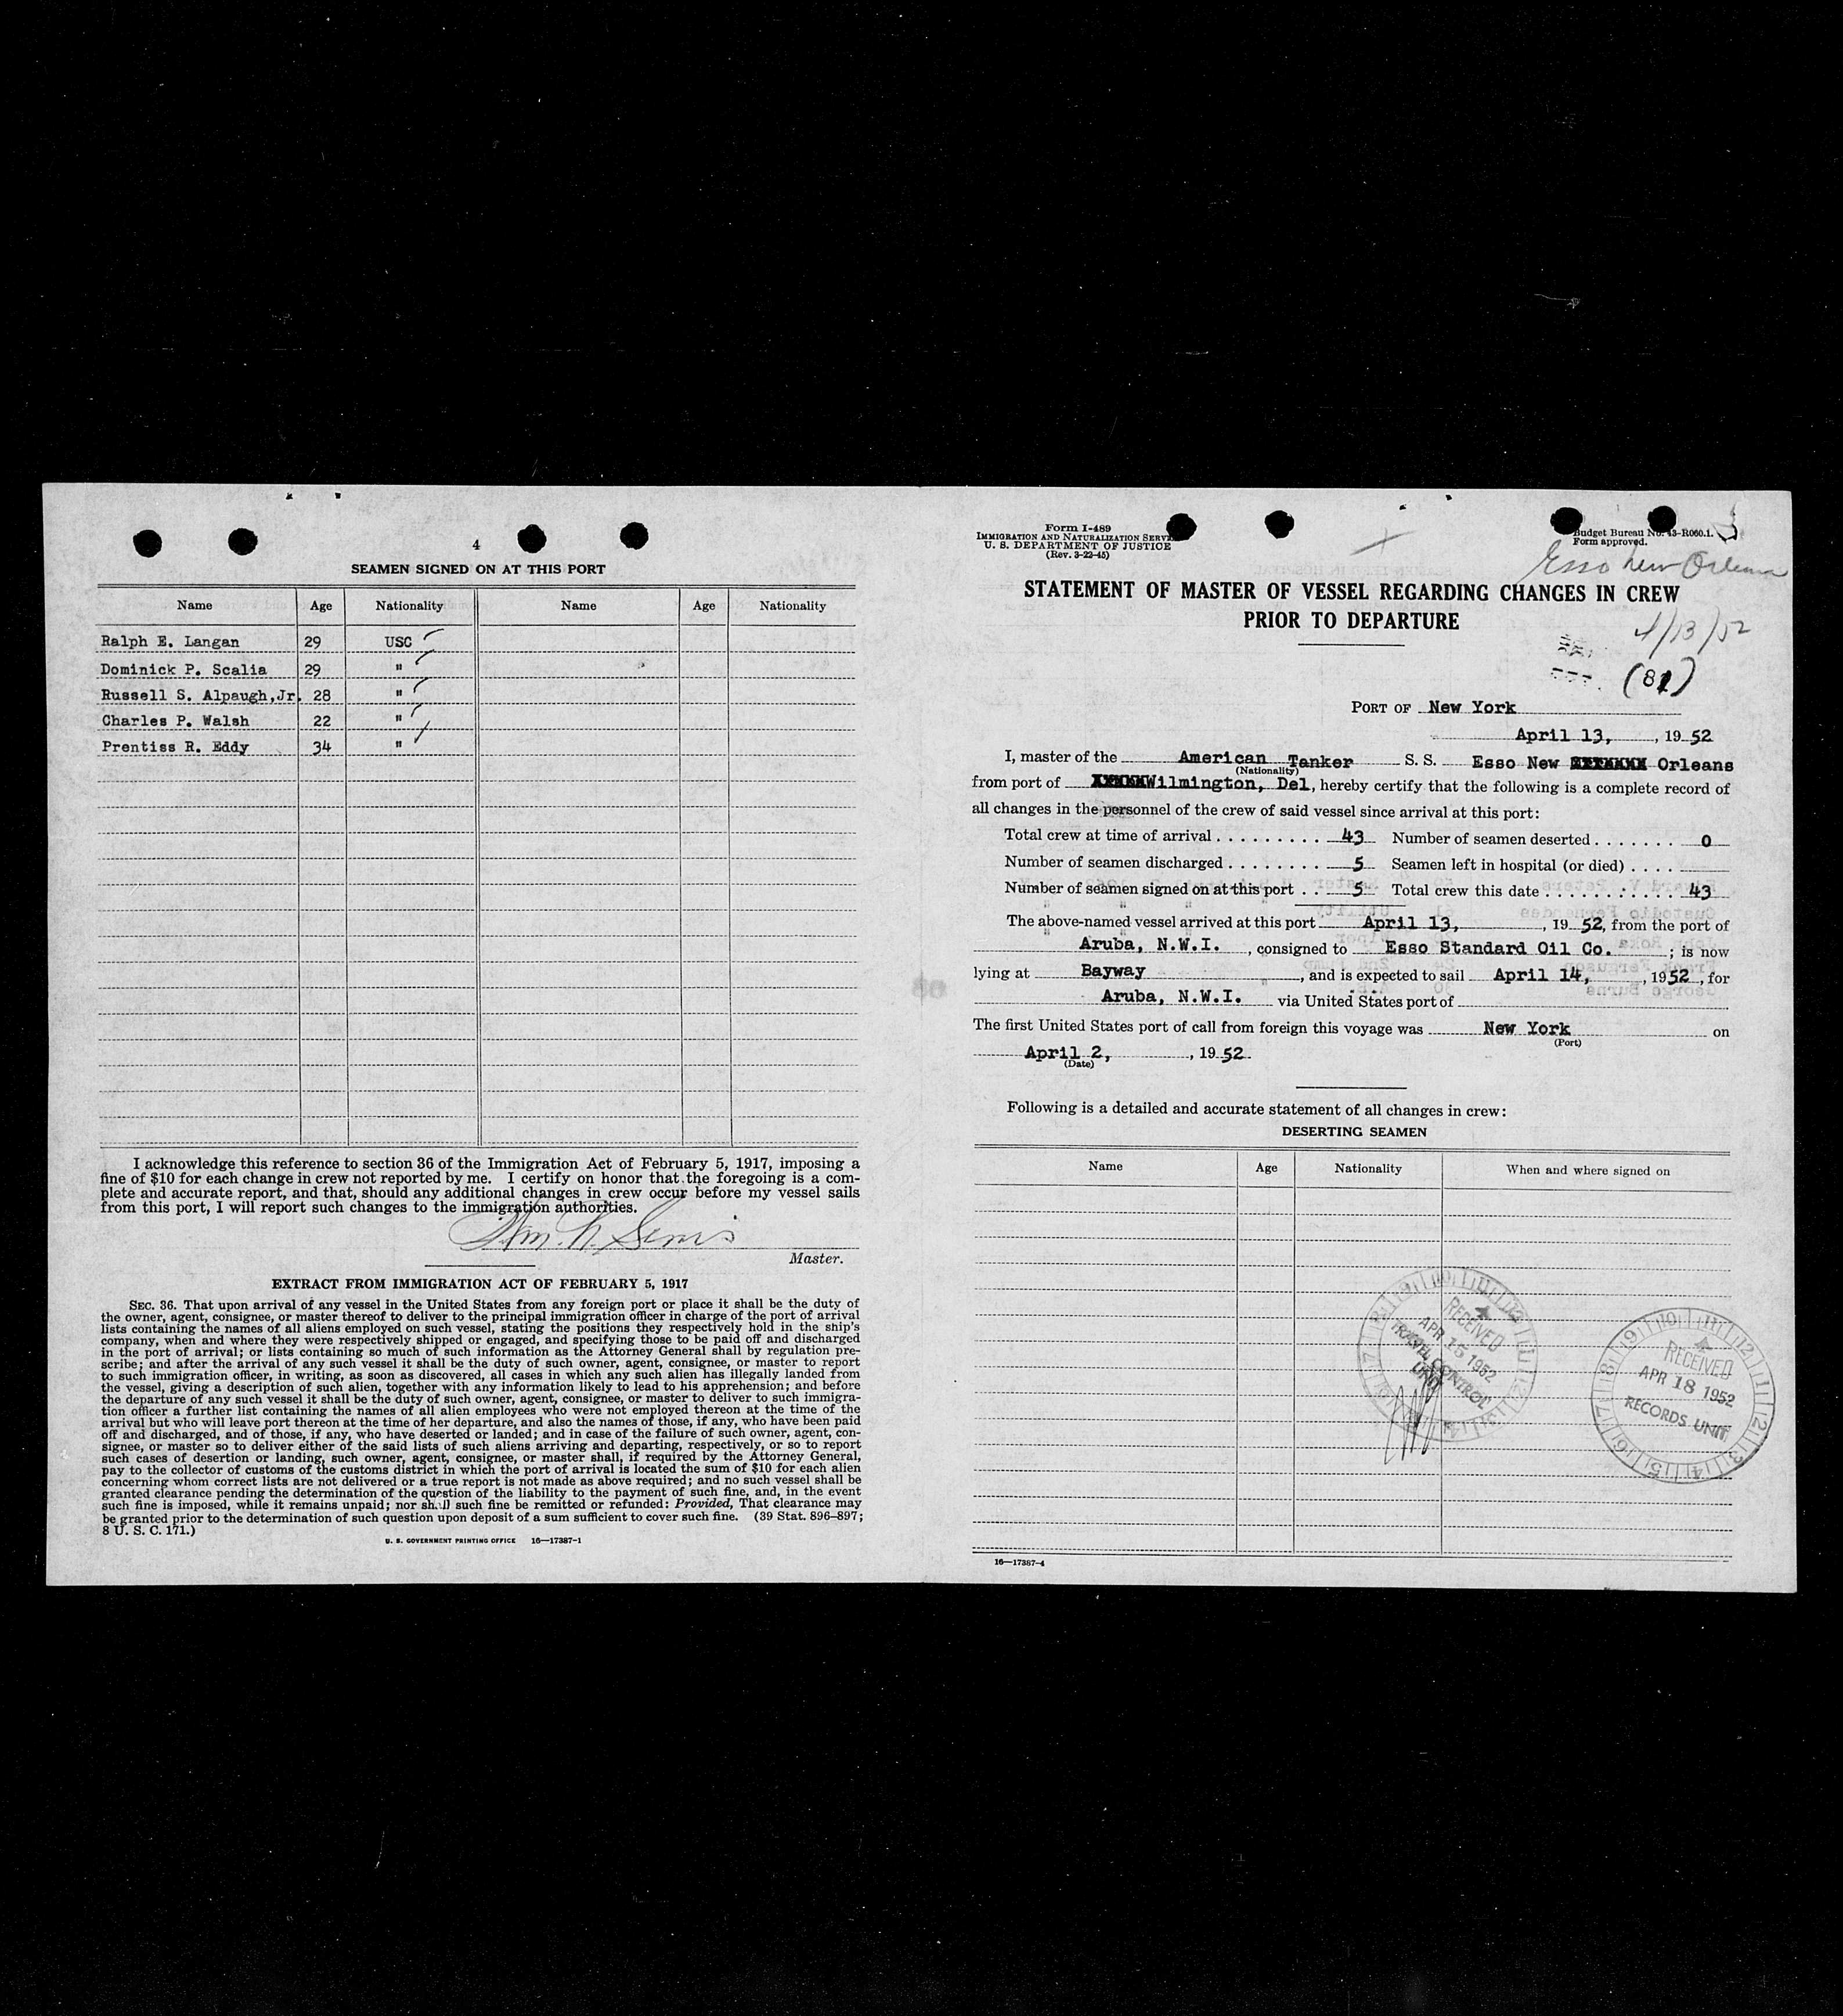 4
SEAMEN SIGNED ON AT THIS PORT
Name Age Nationality Name Age Nationality
Ralph E. Langan 29 USC
Dominick P. Scalia 29 "
Russell S. Alpaugh,Jr. 28 "
Charles P. Walsh 22 "
Prentiss R. Eddy 34 "
I acknowledge this reference to section 36 of the Immigration Act of February 5, 1917, imposing a
fine of $10 for each change in crew not reported by me. I certify on honor that the foregoing is a com-
plete and accurate report, and that, should any additional changes in crew occur before my vessel sails
from this port, I will report such changes to the immigration authorities.
Wm. N.
Master.
EXTRACT FROM IMMIGRATION ACT OF FEBRUARY 5, 1917
SEC. 36. That upon arrival of any vessel in the United States from any foreign port or place it shall be the duty of
the owner, agent, consignee, or master thereof to deliver to the principal immigration officer in charge of the port of arrival
lists containing the names of all aliens employed on such vessel, stating the positions they respectively hold in the ship's
company, when and where they were respectively shipped or engaged, and specifying those to be paid off and discharged
in the port of arrival; or lists containing so much of such information as the Attorney General shall by regulation pre-
scribe; and after the arrival of any such vessel it shall be the duty of such owner, agent, consignee, or master to report
to such immigration officer, in writing, as soon as discovered, all cases in which any such alien has illegally landed from
the vessel, giving a description of such alien, together with any information likely to lead to his apprehension; and before
the departure of any such vessel it shall be the duty of such owner, agent, consignee, or master to deliver to such immigra-
tion officer a further list containing the names of all alien employees who were not employed thereon at the time of the
arrival but who will leave port thereon at the time of her departure, and also the names of those, if any, who have been paid
off and discharged, and of those, if any, who have deserted or landed; and in case of the failure of such owner, agent, con-
signee, or master so to deliver either of the said lists of such aliens arriving and departing, respectively, or so to report
such cases of desertion or landing, such owner, agent, consignee, or master shall, if required by the Attorney General,
pay to the collector of customs of the customs district in which the port of arrival is located the sum of $10 for each alien
concerning whom correct lists are not delivered or a true report is not made as above required; and no such vessel shall be
granted clearance pending the determination of the question of the liability to the payment of such fine, and, in the event
such fine is imposed, while it remains unpaid; nor shall such fine be remitted or refunded: Provided, That clearance may
be granted prior to the determination of such question upon deposit of a sum sufficient to cover such fine. (39 Stat. 896–897;
8 U. S. C. 171.)
U. S. GOVERNMENT PRINTING OFFICE 16—17387-1
Form I-489
IMMIGRATION AND NATURALIZATION SERVICE
U. S. DEPARTMENT OF JUSTICE
(Rev. 3-22-45)
Budget Bureau No. 43-R060.1.
Form approved.
Esso New Orleans
STATEMENT OF MASTER OF VESSEL REGARDING CHANGES IN CREW
PRIOR TO DEPARTURE
4/13/52
(81)
PORT OF New York
April 13, , 19 52
I, master of the American Tanker S. S. Esso New Orleans
(Nationality)
from port of Wilmington, Del, hereby certify that the following is a complete record of
all changes in the personnel of the crew of said vessel since arrival at this port:
Total crew at time of arrival . . . . . . . . . 43 Number of seamen deserted . . . . . . . 0
Number of seamen discharged . . . . . . . . 5 Seamen left in hospital (or died) . . . .
Number of seamen signed on at this port . . 5 Total crew this date . . . . . . . . . . 43
The above-named vessel arrived at this port April 13, , 19 52, from the port of
Aruba, N.W.I. , consigned to Esso Standard Oil Co. ; is now
lying at Bayway , and is expected to sail April 14, , 1952 , for
Aruba, N.W.I. via United States port of
The first United States port of call from foreign this voyage was New York on
(Port)
April 2, , 19 52
(Date)
Following is a detailed and accurate statement of all changes in crew:
DESERTING SEAMEN
Name Age Nationality When and where signed on
RECEIVED
APR 15 1952
TRAVEL CONTROL
UNIT
RECEIVED
APR 18 1952
RECORDS UNIT
16—17387-4